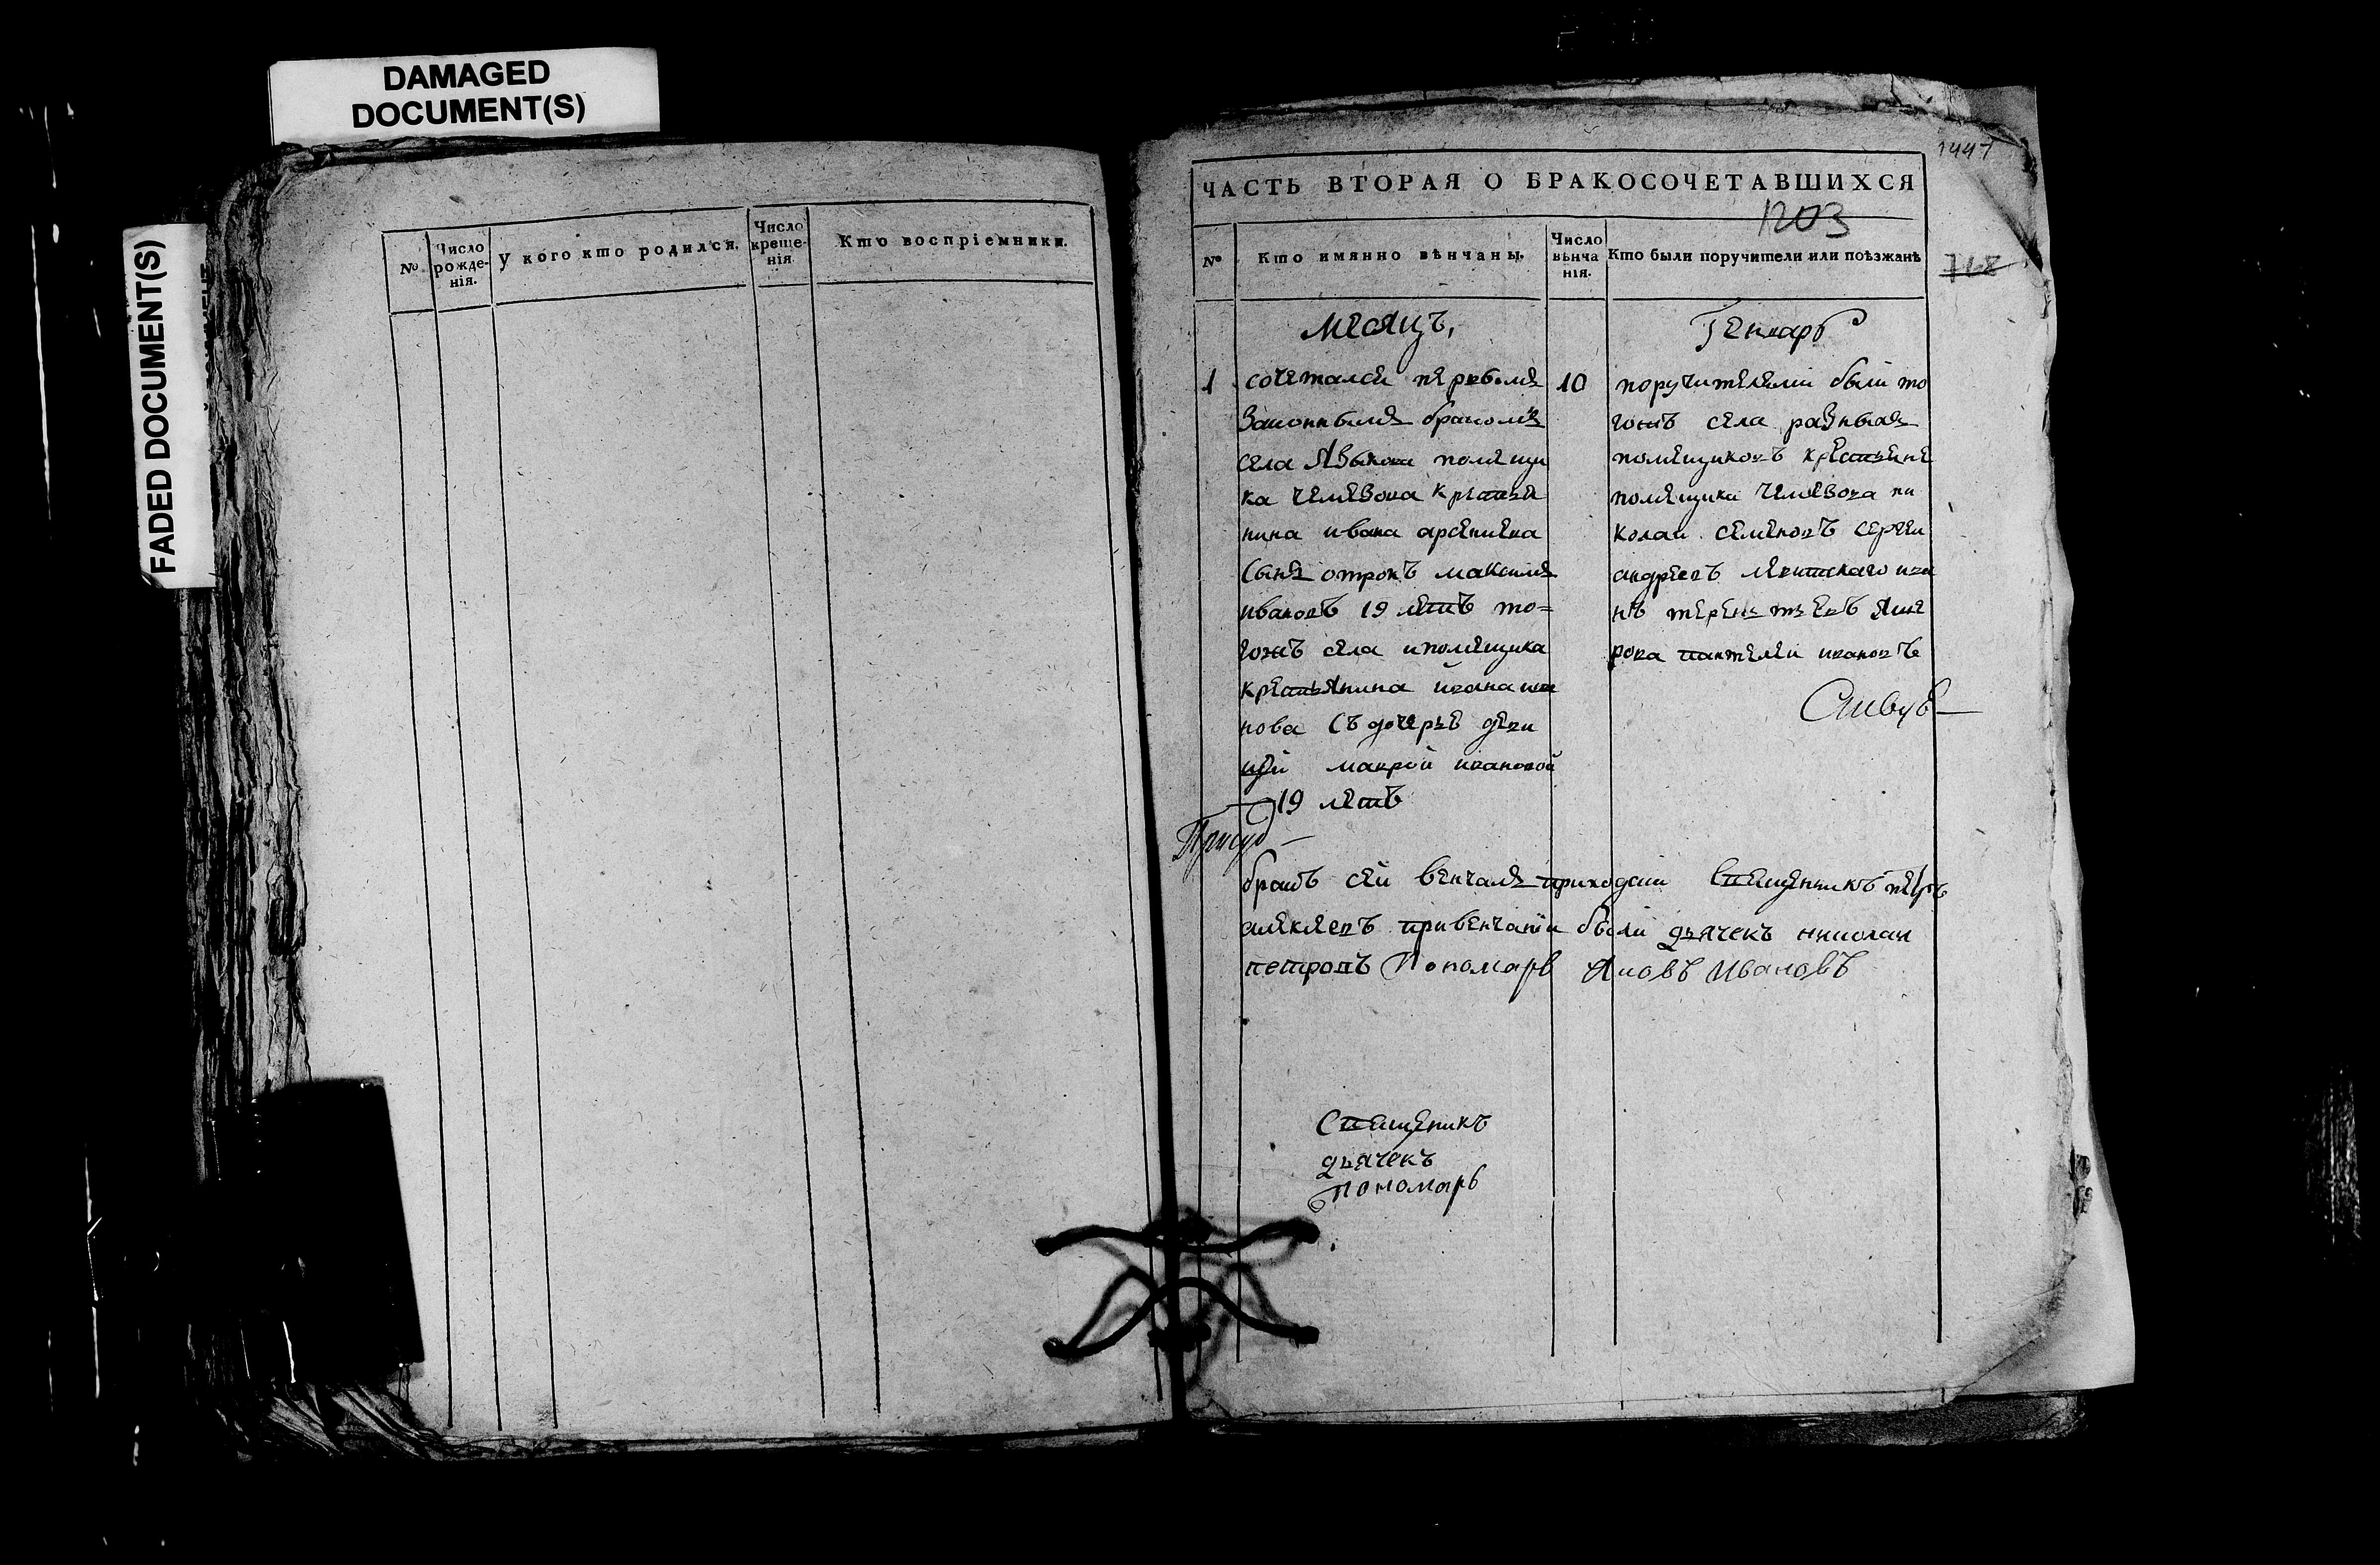 DAMAGED
DOCUMENT(S)
FADED DOCUMENT(S)
№
Число рожде-нія.
У кого кто родился.
Число креще-нія
Кто воспріемники.
1447
ЧАСТЬ ВТОРАЯ О БРАКОСОЧЕТАВШИХСЯ
1203
№
Кто имянно вѣнчаны.
Число вѣнча нія.
Кто были поручители или поѣзжанѣ
месяцъ,
Генварь
1
сочетался первымъ
законнымъ бракомъ
села Языкова помещи
ка крестья
нина ивана арсениева
сынъ отрокъ максимъ
ивановъ 19 летъ то=
гожъ села ипомещика
крестьянина ивана ива
нова съ дочерье деви
цей маврой ивановой
19 летъ
10
поручителями были то
гожъ села разныхъ
помещиковъ крестьяне
помещика ни
колаи семеновъ сергеи
андреевъ ива
нъ терентьевъ
рова пантелеи ивановъ
бракъ сей венчалъ приходски священникъ петръ
алексеевъ привенчании были дьячекъ николаи
петровъ Пономарь Яковъ Ивановъ
Священикъ
дьячекъ
Пономарь